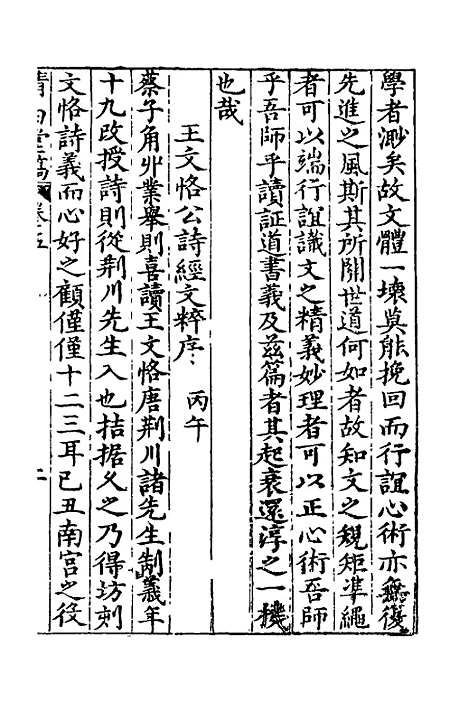 學者渺矣故文體一壞莫能挽回而行誼心術亦無復
先進之風斯其所關世道何如者故知文之規矩準繩
者可以端行誼識文之精義妙理者可以正心術吾師
乎吾師乎讀証道書義及茲篇者其起衰還淳之一機
也哉
王文恪公詩經文粹序 丙午
蔡子角丱業舉則喜讀王文恪唐荆川諸先生制義年
十九改授詩則從荆川先生入也拮据久之乃得坊刻
文恪詩義而心好之顧僅僅十二三耳已丑南宮之役